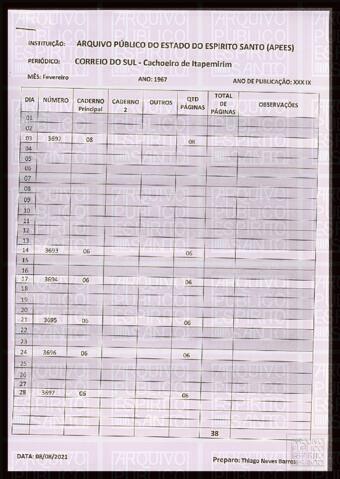 INSTITUIÇÃO: ARQUIVO PÚBLICO DO ESTADO DO ESPIRITO SANTO (APEES)
PERIÓDICO: CORREIO DO SUL - Cachoeiro de Itapemirim
MÊS: Fevereiro ANO: 1967 ANO DE PUBLICAÇÃO: XXX IX
DIA NÚMERO CADERNO Principal CADERNO 2 OUTROS QTD PÁGINAS TOTAL DE PÁGINAS OBSERVAÇÕES
01
02
03 3692 08 08
04
05
06
07
08
09
10
11
12
13
14 3693 06 06
15
16
17 3694 06 06
18
19
20
21 3695 06 06
22
23
24 3696 06 06
25
26
27
28 3697 06 06
38
DATA: 08/08/2021 Preparo: Thiago Neves Barros
ARQUIVO PÚBLICO ESPIRITO SANTO